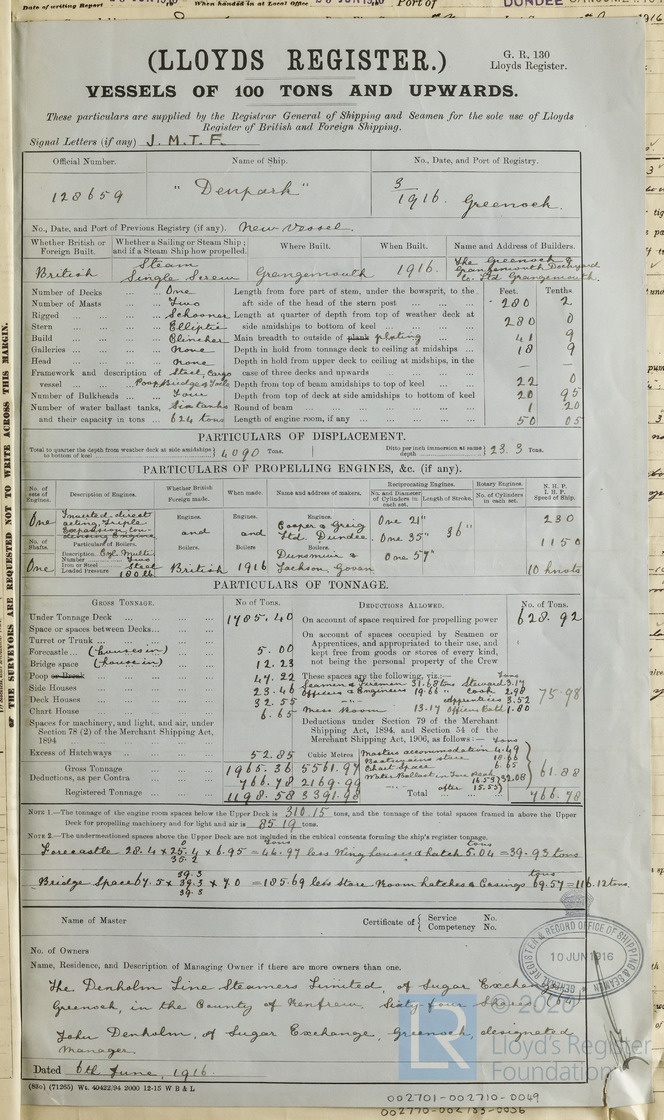 Date of writing Report
When handed in at Local Office
Port of
DUNDEE
(LLOYDS REGISTER.)
G. R. 130
Lloyds Register.
VESSELS OF 100 TONS AND UPWARDS.
These particulars are supplied by the Registrar General of Shipping and Seamen for the sole use of Lloyds
Register of British and Foreign Shipping.
Signal Letters (if any) J. M. T. F.
Official Number. Name of Ship. No., Date, and Port of Registry.
128659 "Denpark" 3/1916 Greenock.
No., Date, and Port of Previous Registry (if any). New Vessel.
Whether British or Foreign Built. Whether a Sailing or Steam Ship; and if a Steam Ship how propelled. Where Built. When Built. Name and Address of Builders.
British Steam Single Screw Grangemouth 1916. The Greenock & Grangemouth Dockyard Co. Ltd Grangemouth.
Feet. Tenths.
Number of Decks ... ... One Length from fore part of stem, under the bowsprit, to the
Number of Masts ... ... Two aft side of the head of the stern post ... 280 2
Rigged ... ... Schooner Length at quarter of depth from top of weather deck at
Stern ... ... Elliptic side amidships to bottom of keel ... 280 0
Build ... ... Clincher Main breadth to outside of plank plating ... 41 9
Galleries ... ... None Depth in hold from tonnage deck to ceiling at midships ... 18 9
Head ... ... None Depth in hold from upper deck to ceiling at midships, in the
Framework and description of Steel, Cargo case of three decks and upwards ... — —
vessel ... Poop Bridge & Focle Depth from top of beam amidships to top of keel ... 22 0
Number of Bulkheads ... Four Depth from top of deck at side amidships to bottom of keel 20 95
Number of water ballast tanks, Six tanks Round of beam ... 1 20
and their capacity in tons ... 624 tons Length of engine room, if any ... 50 05
PARTICULARS OF DISPLACEMENT.
Total to quarter the depth from weather deck at side amidships to bottom of keel 4090 Tons. Ditto per inch immersion at same depth 23.3 Tons.
PARTICULARS OF PROPELLING ENGINES, &c. (if any).
No. of sets of Engines. Description of Engines. Whether British or Foreign made. When made. Name and address of makers. Reciprocating Engines. Rotary Engines. N. H. P. I. H. P. Speed of Ship.
No. and Diameter of Cylinders in each set. Length of Stroke. No. of Cylinders in each set.
One Inverted direct acting, Triple Expansion, Condensing Engine Engines. and Engines. and Engines. Cooper & Greig Ltd. Dundee. One 21" One 35" One 57" 36" 230
No. of Shafts. Particulars of Boilers. Boilers. Boilers. Boilers. 1150
Description Cyl. Multi Number Two
One Iron or Steel Steel Loaded Pressure 180 lb British 1916 Dunsmuir & Jackson, Govan 10 knots
PARTICULARS OF TONNAGE.
GROSS TONNAGE. No of Tons. DEDUCTIONS ALLOWED. No. of Tons.
Under Tonnage Deck ... 1785.40 On account of space required for propelling power 628.92
Space or spaces between Decks... On account of spaces occupied by Seamen or
Turret or Trunk ... Apprentices, and appropriated to their use, and
Forecastle... (houses in) 5.00 kept free from goods or stores of every kind,
Bridge space (house in) 12.23 not being the personal property of the Crew
Poop or Break ... 47.22 These spaces are the following, viz.:— Tons
Side Houses ... 23.46 Seamen & Firemen 31.68 tons Steward 3.17
Deck Houses ... 32.55 Officers & Engineers 19.66 " Cook 2.98 75.98
Chart House ... 6.65 Apprentices 3.52
Mess Room 13.17 Officers Bath 1.80
Spaces for machinery, and light, and air, under Section 78 (2) of the Merchant Shipping Act, 1894
Deductions under Section 79 of the Merchant Shipping Act, 1894, and Section 54 of the Merchant Shipping Act, 1906, as follows:— Tons
Excess of Hatchways ... 52.85 Cubic Metres Masters accommodation 4.49
Gross Tonnage 1965.36 5561.97 Boatswains store 18.66
Chart Space 6.65 61.88
Deductions, as per Contra 766.78 2169.99 Water Ballast in Fore Peak 16.53 32.08
after 15.55
Registered Tonnage 1198.58 3391.98 Total ... 766.78
NOTE 1.—The tonnage of the engine room spaces below the Upper Deck is 310.15 tons, and the tonnage of the total spaces framed in above the Upper
Deck for propelling machinery and for light and air is 85.19 tons.
NOTE 2.—The undermentioned spaces above the Upper Deck are not included in the cubical contents forming the ship's register tonnage.
Forecastle 28.4 x 0 25.4 35.2 x 6.95 = 44.97 tons less Wing houses & hatch 5.04 tons = 39.93 tons
Bridge Space 67.5 x 39.3 39.3 39.3 x 7.0 = 185.69 less Store Room hatches & Casings 69.57 tons = 116.12 tons.
Name of Master Certificate of { Service No. Competency No.
No. of Owners
Name, Residence, and Description of Managing Owner if there are more owners than one.
The Denholm Line Steamers Limited, of Sugar Exchange
Greenock, in the County of Renfrew. Sixty four Shares (64)
John Denholm, of Sugar Exchange, Greenock, designated
Manager.
Dated 6th June, 1916.
(83o) (71265) Wt. 40422/94 2000 12-15 W B & L
REGISTER & RECORD OFFICE OF SHIPPING & SEAMEN
10 JUN 1916
OF THE SURVEYORS ARE REQUESTED NOT TO WRITE ACROSS THIS MARGIN.
© 2020
LR
Lloyd's Register
Foundation
002701-002710-0049